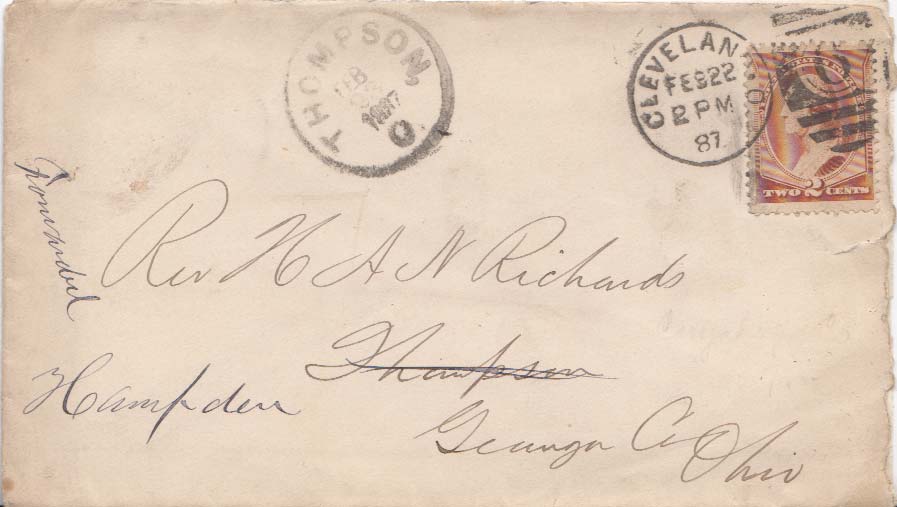 THOMPSON, O
FEB
1887
CLEVELAND O
FEB 22
2 PM
87
TWO 2 CENTS
Forwarded
Rev H A N Richards
Thompson
Hampden
Geauga Co Ohio